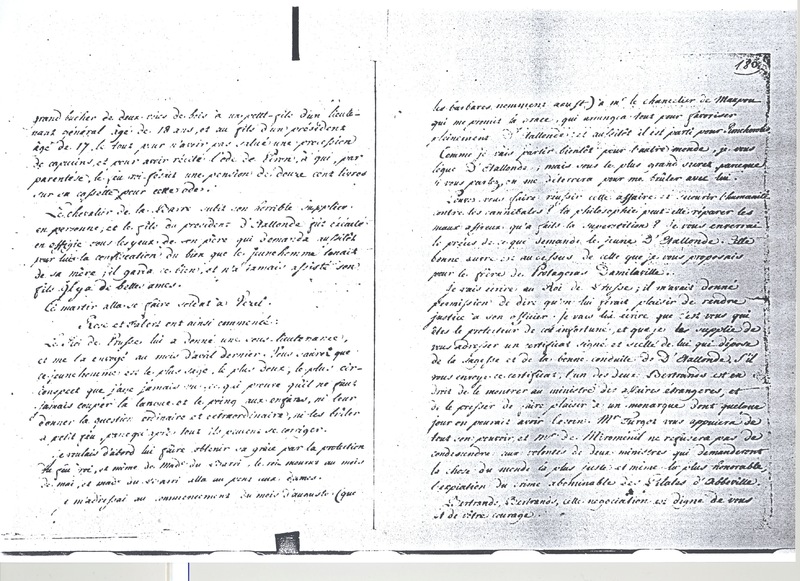 grand bucher de deux voies de bois à un petit-fils d'un lieute-
nant général agé de 18 ans, et au fils d'un président
agé de 17. le tout pour n'avoir pas salué une procession
de capucins, et pour avoir récité l'ode de Piron, à qui, par
parentèse, le feu roi fesait une pension de douze cent livres
sur sa cassette pour cette ode.
Le chevalier de la Barre subit son horrible supplice
en personne, et le fils du président d'Etallonde fut exécuté
en effigie sous les yeux de son père qui demanda aussitôt
pour lui la confiscation du bien que le jeune homme tenait
de sa mère; il garda ce bien, et n'a jamais assisté son
fils. Il y a de belles ames.
Ce martir alla se faire soldat à Vezel.
Rose et Fabert ont ainsi commencé.
Le Roi de Prusse lui a donné une sous-lieutenance,
et me l'a envoyé au mois d'avril dernier. Vous saurez que
ce jeune homme est le plus sage, le plus doux, le plus cir-
conspect que j'aye jamais vu, ce qui prouve qu'il ne faut
jamais couper la langue et le poing aux enfans, ni leur
donner la question ordinaire et extraordinaire, ni les brûler
à petit feu, parce qu'après tout ils peuvent se corriger.
je voulais d'abord lui faire obtenir sa grâce par la protection
du feu roi, et même de Made du Barri. le roi mourut au mois
de mai, et made du Barri alla au pont aux dames.
je m'adressai au commencement du mois d'auguste (que
186
les barbares nomment aoust) à mr. le chancelier de Maupou
qui me promit la grace, qui arrangea tout pour favoriser
pleinement D'Etallonde; et aussitôt il est parti pour
Comme je vais partir bientôt pour l'autre monde, je vous
lègue D'Etallonde; mais sous le plus grand secret, parceque
si vous parlez, on me déterrera pour me brûler avec lui.
Pouvez vous faire réussir cette affaire et secourir l'humanité
contre les cannibales? la philosophie peut-elle réparer les
maux affreux qu'a faits la superstition? Je vous enverrai
le précis de ce que demande le jeune D'Etallonde. Cette
bonne œuvre est au dessus de celle que je vous proposais
pour le frère de Protagoras Damilaville.
Je vais écrire au Roi de Prusse; il m'avait donné
permission de dire qu'on lui ferait plaisir de rendre
justice à son officier. Je vais lui écrire que c'est vous qui
êtes le protecteur de cet infortuné, et que je le supplie de
vous adresser un certificat signé et scellé de lui qui dépose
de la sagesse et de la bonne conduite de D'Etallonde. S'il
vous envoye ce certificat, l'un des deux Bertrands est en
droit de le montrer au ministre des affaires étrangeres, et
de le presser de faire plaisir à un monarque dont quelque
jour on pourait avoir besoin. Mr. Turgot vous appuiera de
tout son pouvoir, et Mr. de Miromenil ne refusera pas de
condescendre aux volontés de deux ministres qui demanderont
la chose du monde la plus juste et même la plus honorable
l'expiation du crime abominable des Pilates d'Abbeville.
Bertrands, Bertrands, cette négociation est digne de vous
et de vôtre courage.